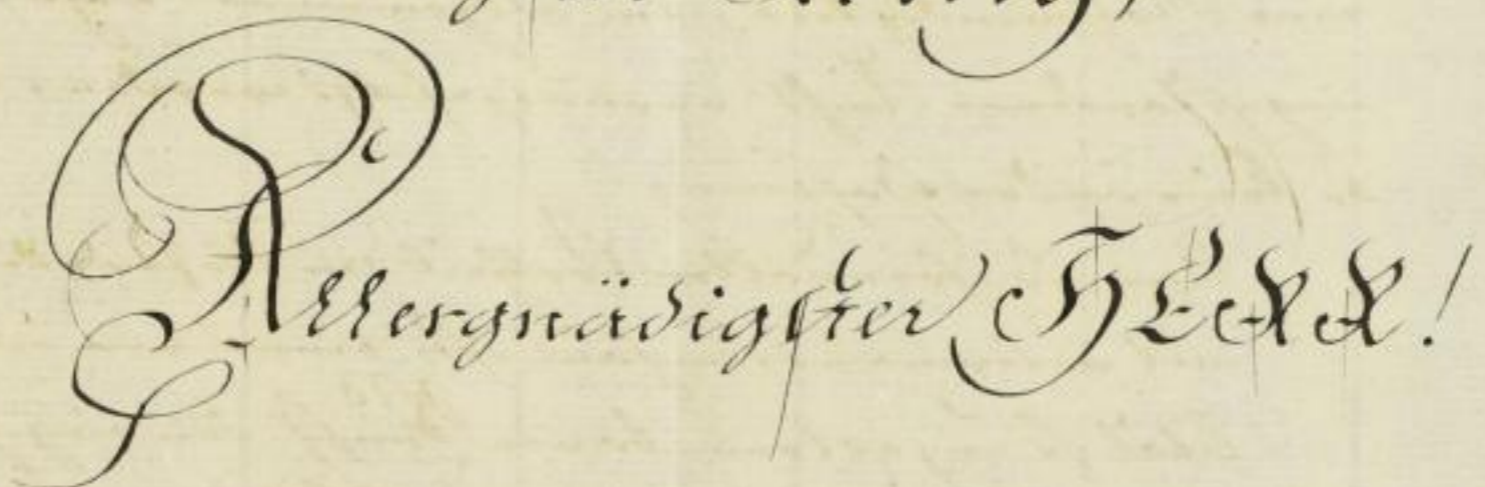 Allergnädigster HERR!